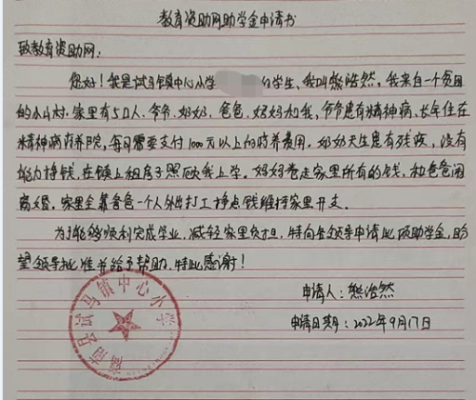 教育资助网助学金申请书
致教育资助网:
您好!我是试马镇中心小学 的学生、我叫熊浩然,我来自一个贫困
的小山村,家里有5口人,爷爷,奶奶,爸爸,妈妈和我,爷爷患有精神病、长年住在
精神病疗养院,每月需要支付1000元以上的疗养费用。奶奶天生患有残疾,没有
能力挣钱,在镇上租房子照顾我上学。妈妈卷走家里所有的钱,和爸爸闹
离婚。家里全靠爸爸一个人外出打工挣点钱维持家里开支。
为了能够顺利完成学业,减轻家里负担,特向各领导申请此项助学金,盼
望领导批准并给予帮助,特此感谢!
申请人:熊浩然
申请日期:2022年9月17日
商南县试马镇中心小学